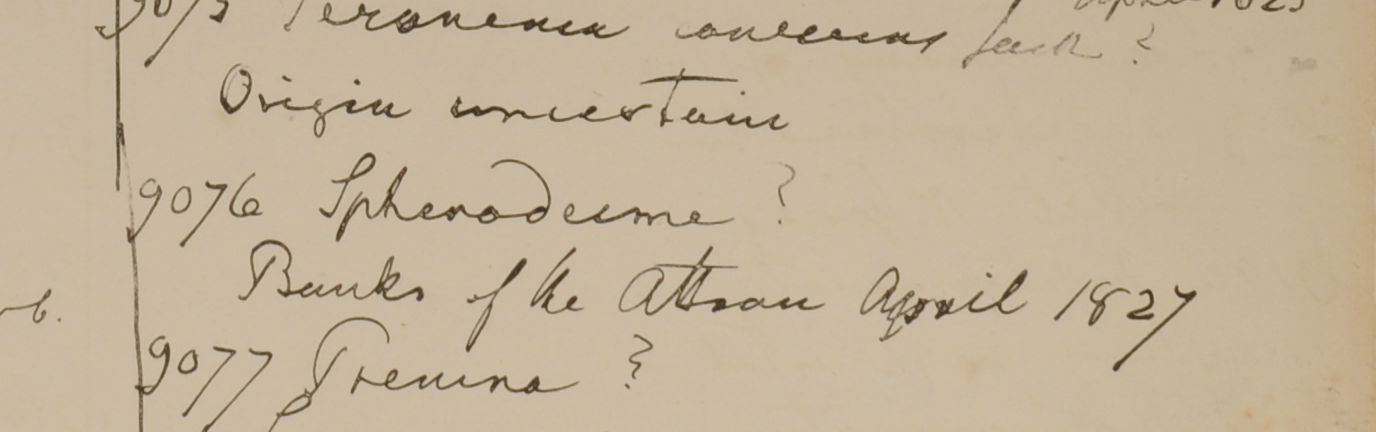 9075 Peronema canescens Jack ?
Origin uncertain
9076 Spherodesme ?
Banks of the Attran April 1827
9077 Premna ?